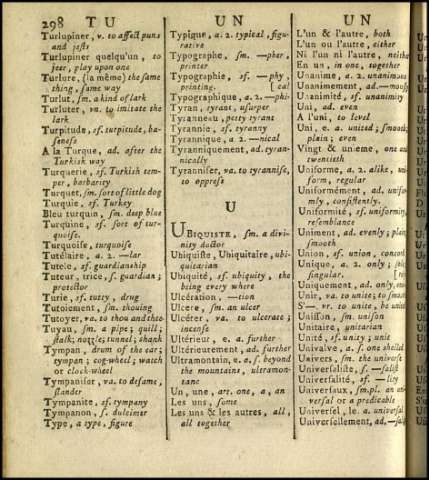 298 TU UN UN
Turlupiner, v. to affect puns
and jests
Turlupiner quelqu'un, to
jeer, play upon one
Turlure, (la même) the same
thing, same way
Turlut, sm. a kind of lark
Turluter, va. to imitate the
lark
Turpitude, sf. turpitude, ba-
seness
A la Turque, ad. after the
Turkish way
Turquerie, sf. Turkish tem-
per, barbarity
Turquet, sm. sort of little dog
Turquie, sf. Turkey
Bleu turquin, sm. deep blue
Turquine, sf. sort of tur-
quoise.
Turquoise, turquoise
Tutélaire, a. 2. —lar
Tutele, sf. guardianship
Tuteur, trice, s. guardian;
protector
Turie, sf. tutty, drug
Tutoiement, sm. thouing
Tutoyer, va. to thou and thee
Tuyau, sm. a pipe; quill;
stalk; nozzle; tunnel; shank
Tympan, drum of the ear;
tympan; cog-wheel; watch
or clock-wheel
Tympaniser, va. to defame,
slander
Tympanite, sf. tympany
Tympanon, s. dulcimer
Type, a type, figure
Typique, a. 2. typical, figu-
rative
Typographe, sm. —pher,
printer
Typographie, sf. —phy,
printing. [cal
Typographique, a. 2. —phi-
Tyran, tyrant, usurper
Tyranneau, petty tyrant
Tyrannie, sf. tyranny
Tyrannique, a. 2. —nical
Tyranniquement, ad. tyran-
nically
Tyranniser, va. to tyrannise,
to oppress
U
UBIQUISTE, sm. a divi-
nity doctor
Ubiquiste, Ubiquitaire, ubi-
quitarian
Ubiquité, sf. ubiquity, the
being every where
Ulcération, —tion
Ulcere, sm. an ulcer
Ulcérer, va. to ulcerate;
incense
Ultérieur, e. a. further
Ultérieurement, ad. further
Ultramontain, e. a. s. beyond
the mountains, ultramon-
tane
Un, une, art. one, a, an
Les uns, some
Les uns & les autres, all,
all together
L'un & l'autre, both
L'un ou l'autre, either
Ni l'un ni l'autre, neithe
En un, in one, together
Unanime, a. 2. unanimous
Unanimement, ad.—mous
Unanimité, sf. unanimity
Uni, ad. even
A l'uni, to level
Uni, e. a. united; smooth;
plain; even
Vingt & unieme, one and
twentieth
Uniforme, a. 2. alike, uni-
form, regular
Uniformément, ad. unifor-
mly, consistently.
Uniformité, sf. uniformity,
resemblance
Uniment, ad. evenly; plain
smooth
Union, sf. union, concord
Unique, a. 2. only; sin
singular.
Uniquement, ad. only,
Unir, va. to unite; to smoo
S'— vr. to unite, be united
Unisson, sm. unison
Unitaire, unitarian
Unité, sf. unity; unit
Univalve, a. s. one shelled
Univers, sm. the universe
Universaliste, s. —salist
Universalité, sf. —lity
Universaux, sm. pl. an uni-
versal or a predicable
Universel, le. a. universal
Universellement, ad.—sally